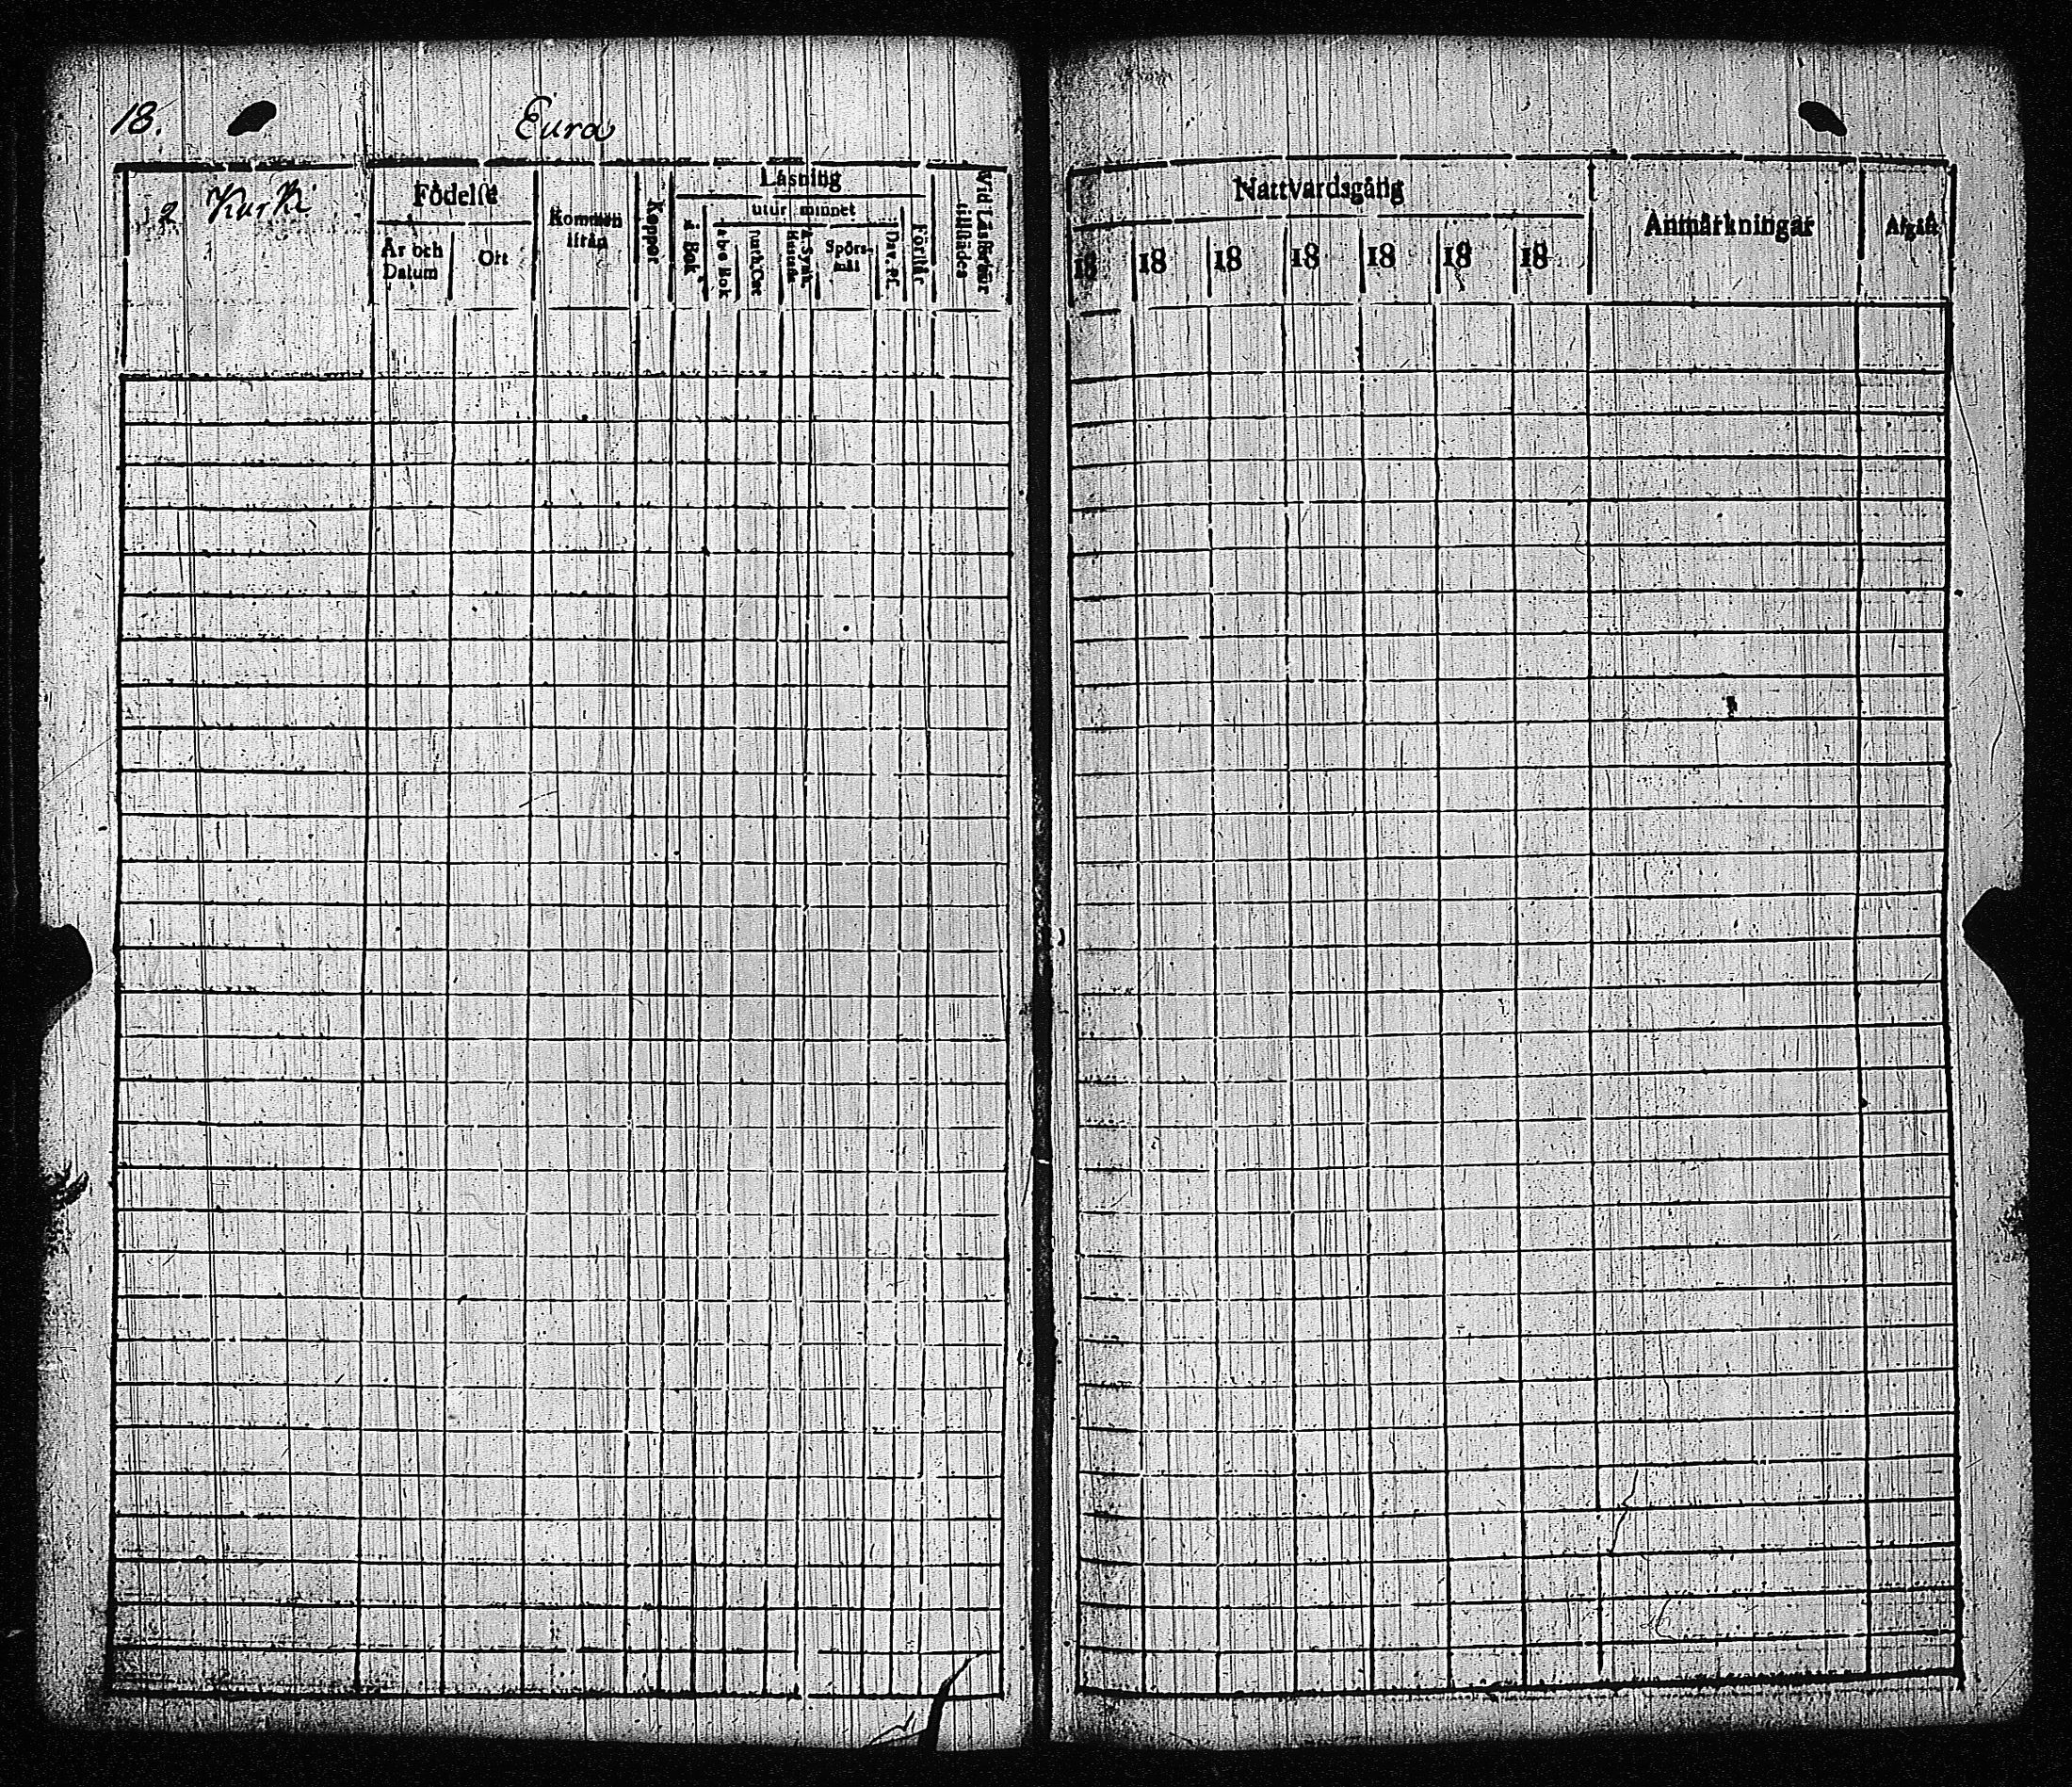 18. Eura
2. Kurki
Födelse
År och Datum
Ort
Kommen ifrån
Koppor
Läsning
å Bok
utur minnet
a b c Bok
Luth. Cat
Spörs-mål
Dav. Ps.
Förstår
Vid Läsförhör tillstädes
Nattvardsgång
18 18 18 18 18 18 18
Anmärkningar
Afgått